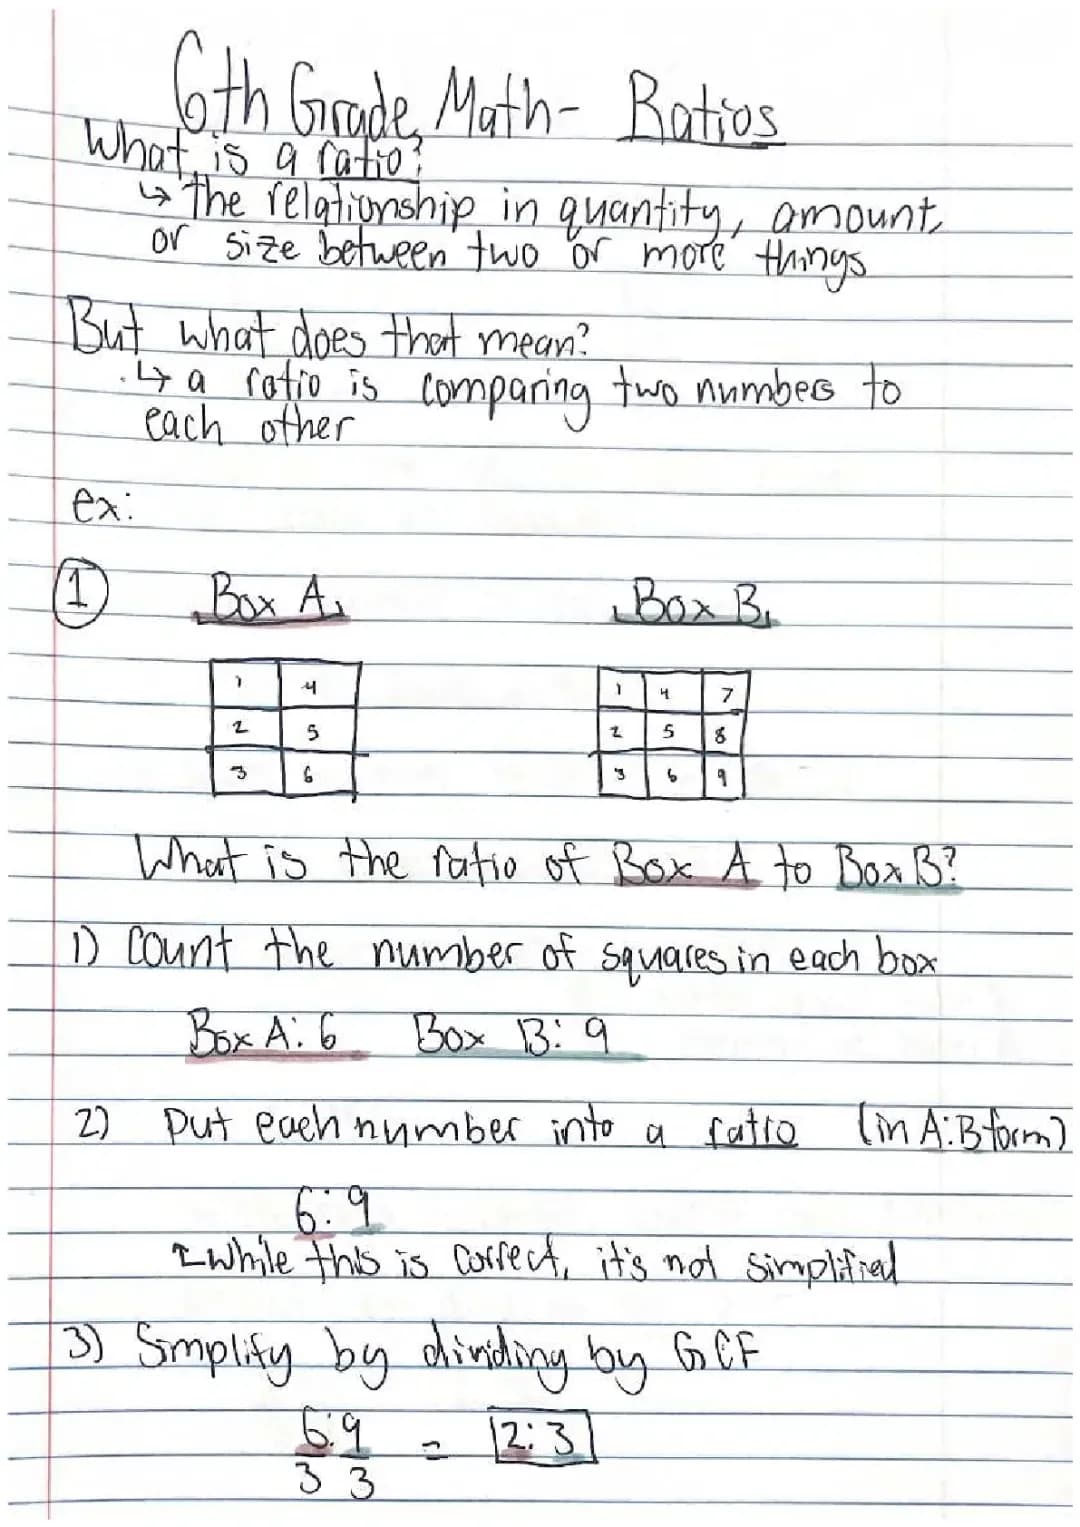 6th Grade Math- Ratios
What is a ratio?
↳ the relationship in quantity, amount,
or size between two or more things
But what does that mean?
↳ a ratio is comparing two numbers to
each other
ex:
1 Box A Box B
1 4 1 4 7
2 5 2 5 8
3 6 3 6 9
What is the ratio of Box A to Box B?
1) Count the number of squares in each box
Box A: 6 Box B: 9
2) Put each number into a ratio (in A:B form)
6:9
↑ while this is correct, it's not simplified
3) Simplify by dividing by GCF
6:9 = 2:3
3 3